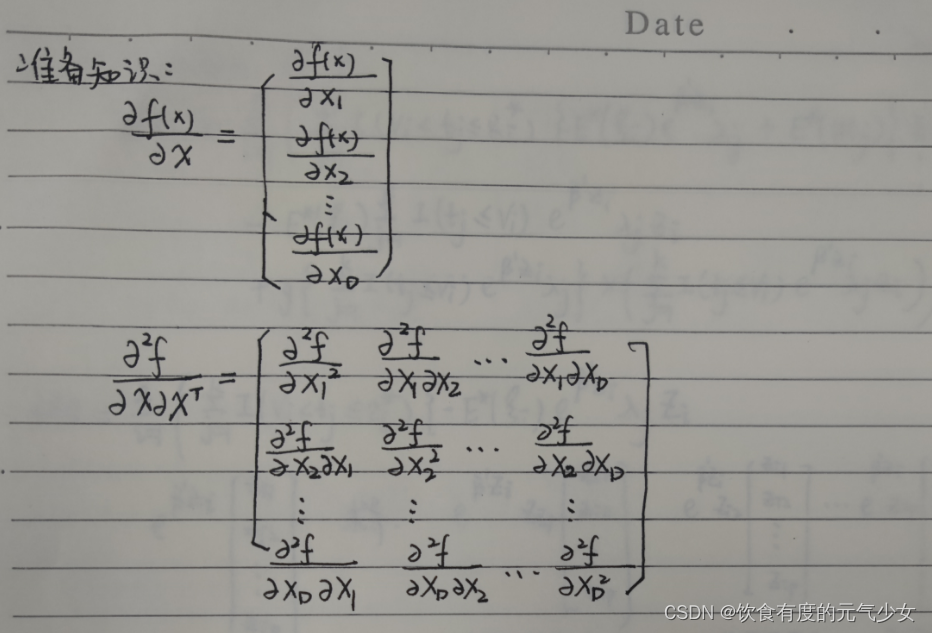 Date
准备知识:
∂f(x)/∂X = [ ∂f(x)/∂X₁
∂f(x)/∂X₂
⋮
∂f(x)/∂X_D ]
∂²f/∂X∂Xᵀ = [ ∂²f/∂X₁² ∂²f/∂X₁∂X₂ ⋯ ∂²f/∂X₁∂X_D
∂²f/∂X₂∂X₁ ∂²f/∂X₂² ⋯ ∂²f/∂X₂∂X_D
⋮ ⋮ ⋮
∂²f/∂X_D∂X₁ ∂²f/∂X_D∂X₂ ⋯ ∂²f/∂X_D² ]
CSDN @饮食有度的元气少女